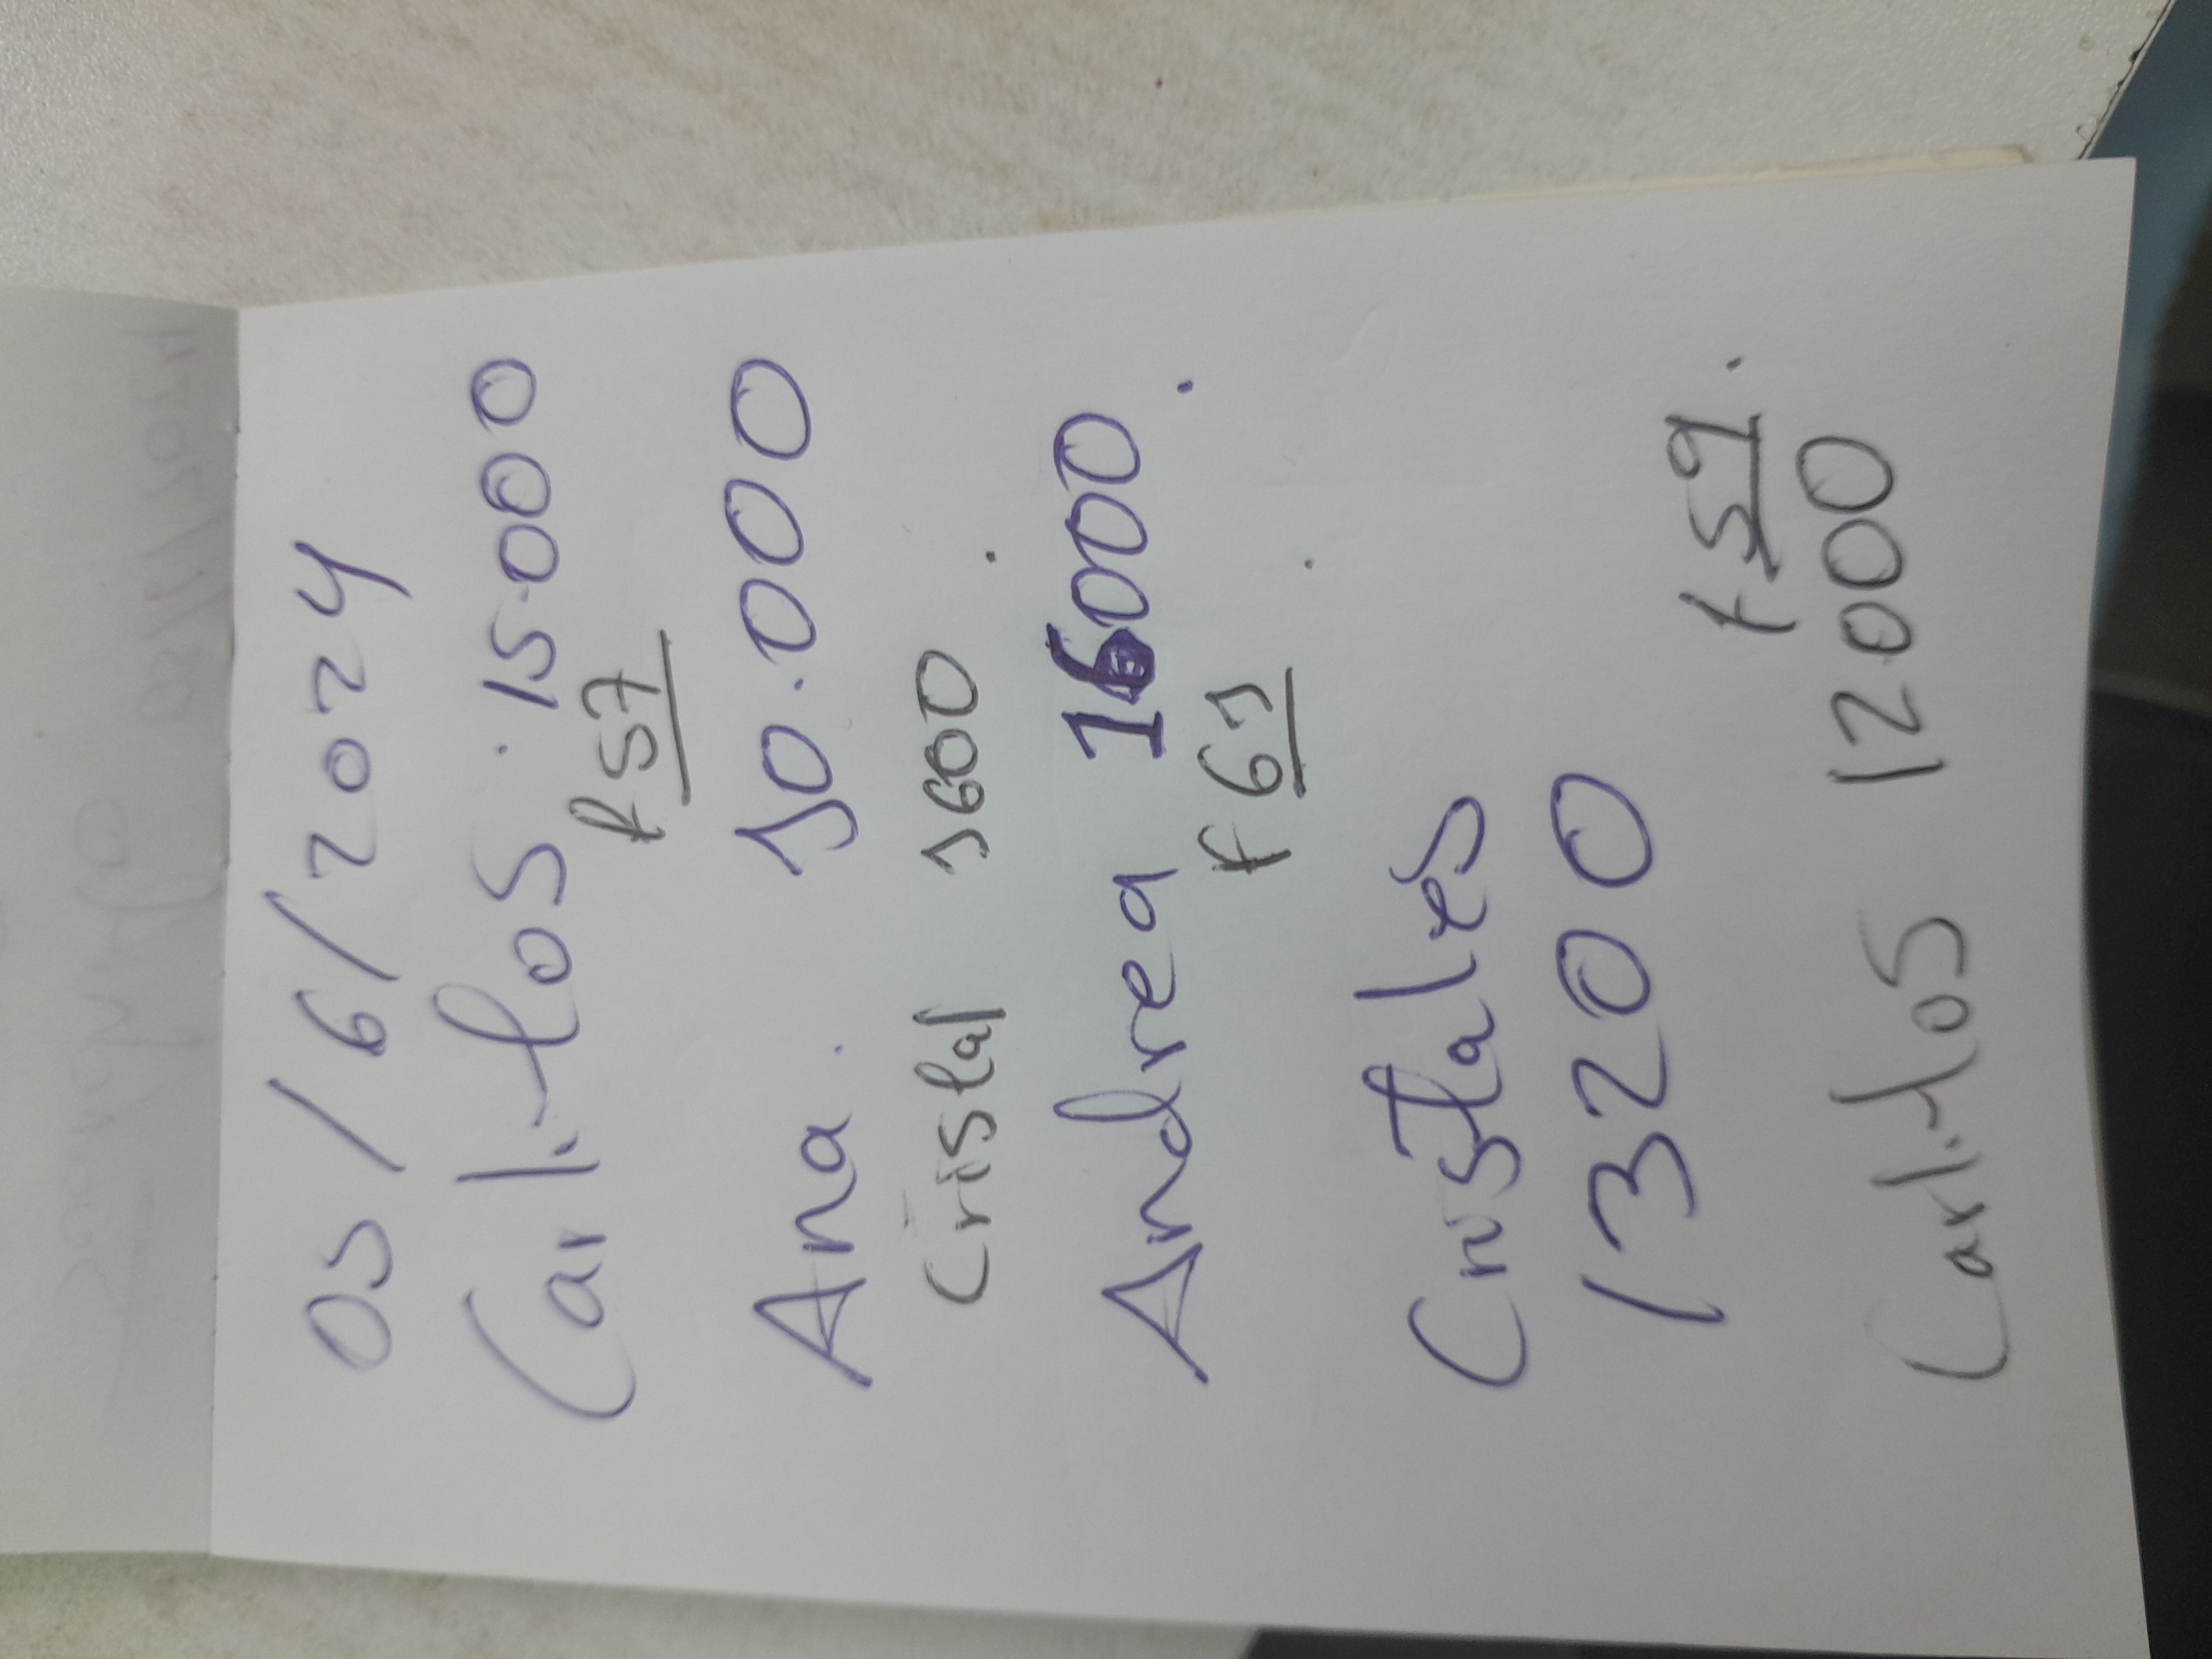 05/6/2024
Carlitos . 15.000
F 57
Ana . 10.000
Cristal 1600 .
Andrea 16000 .
F 61 .
Cristales
13200
F 59 .
Carlitos 12000